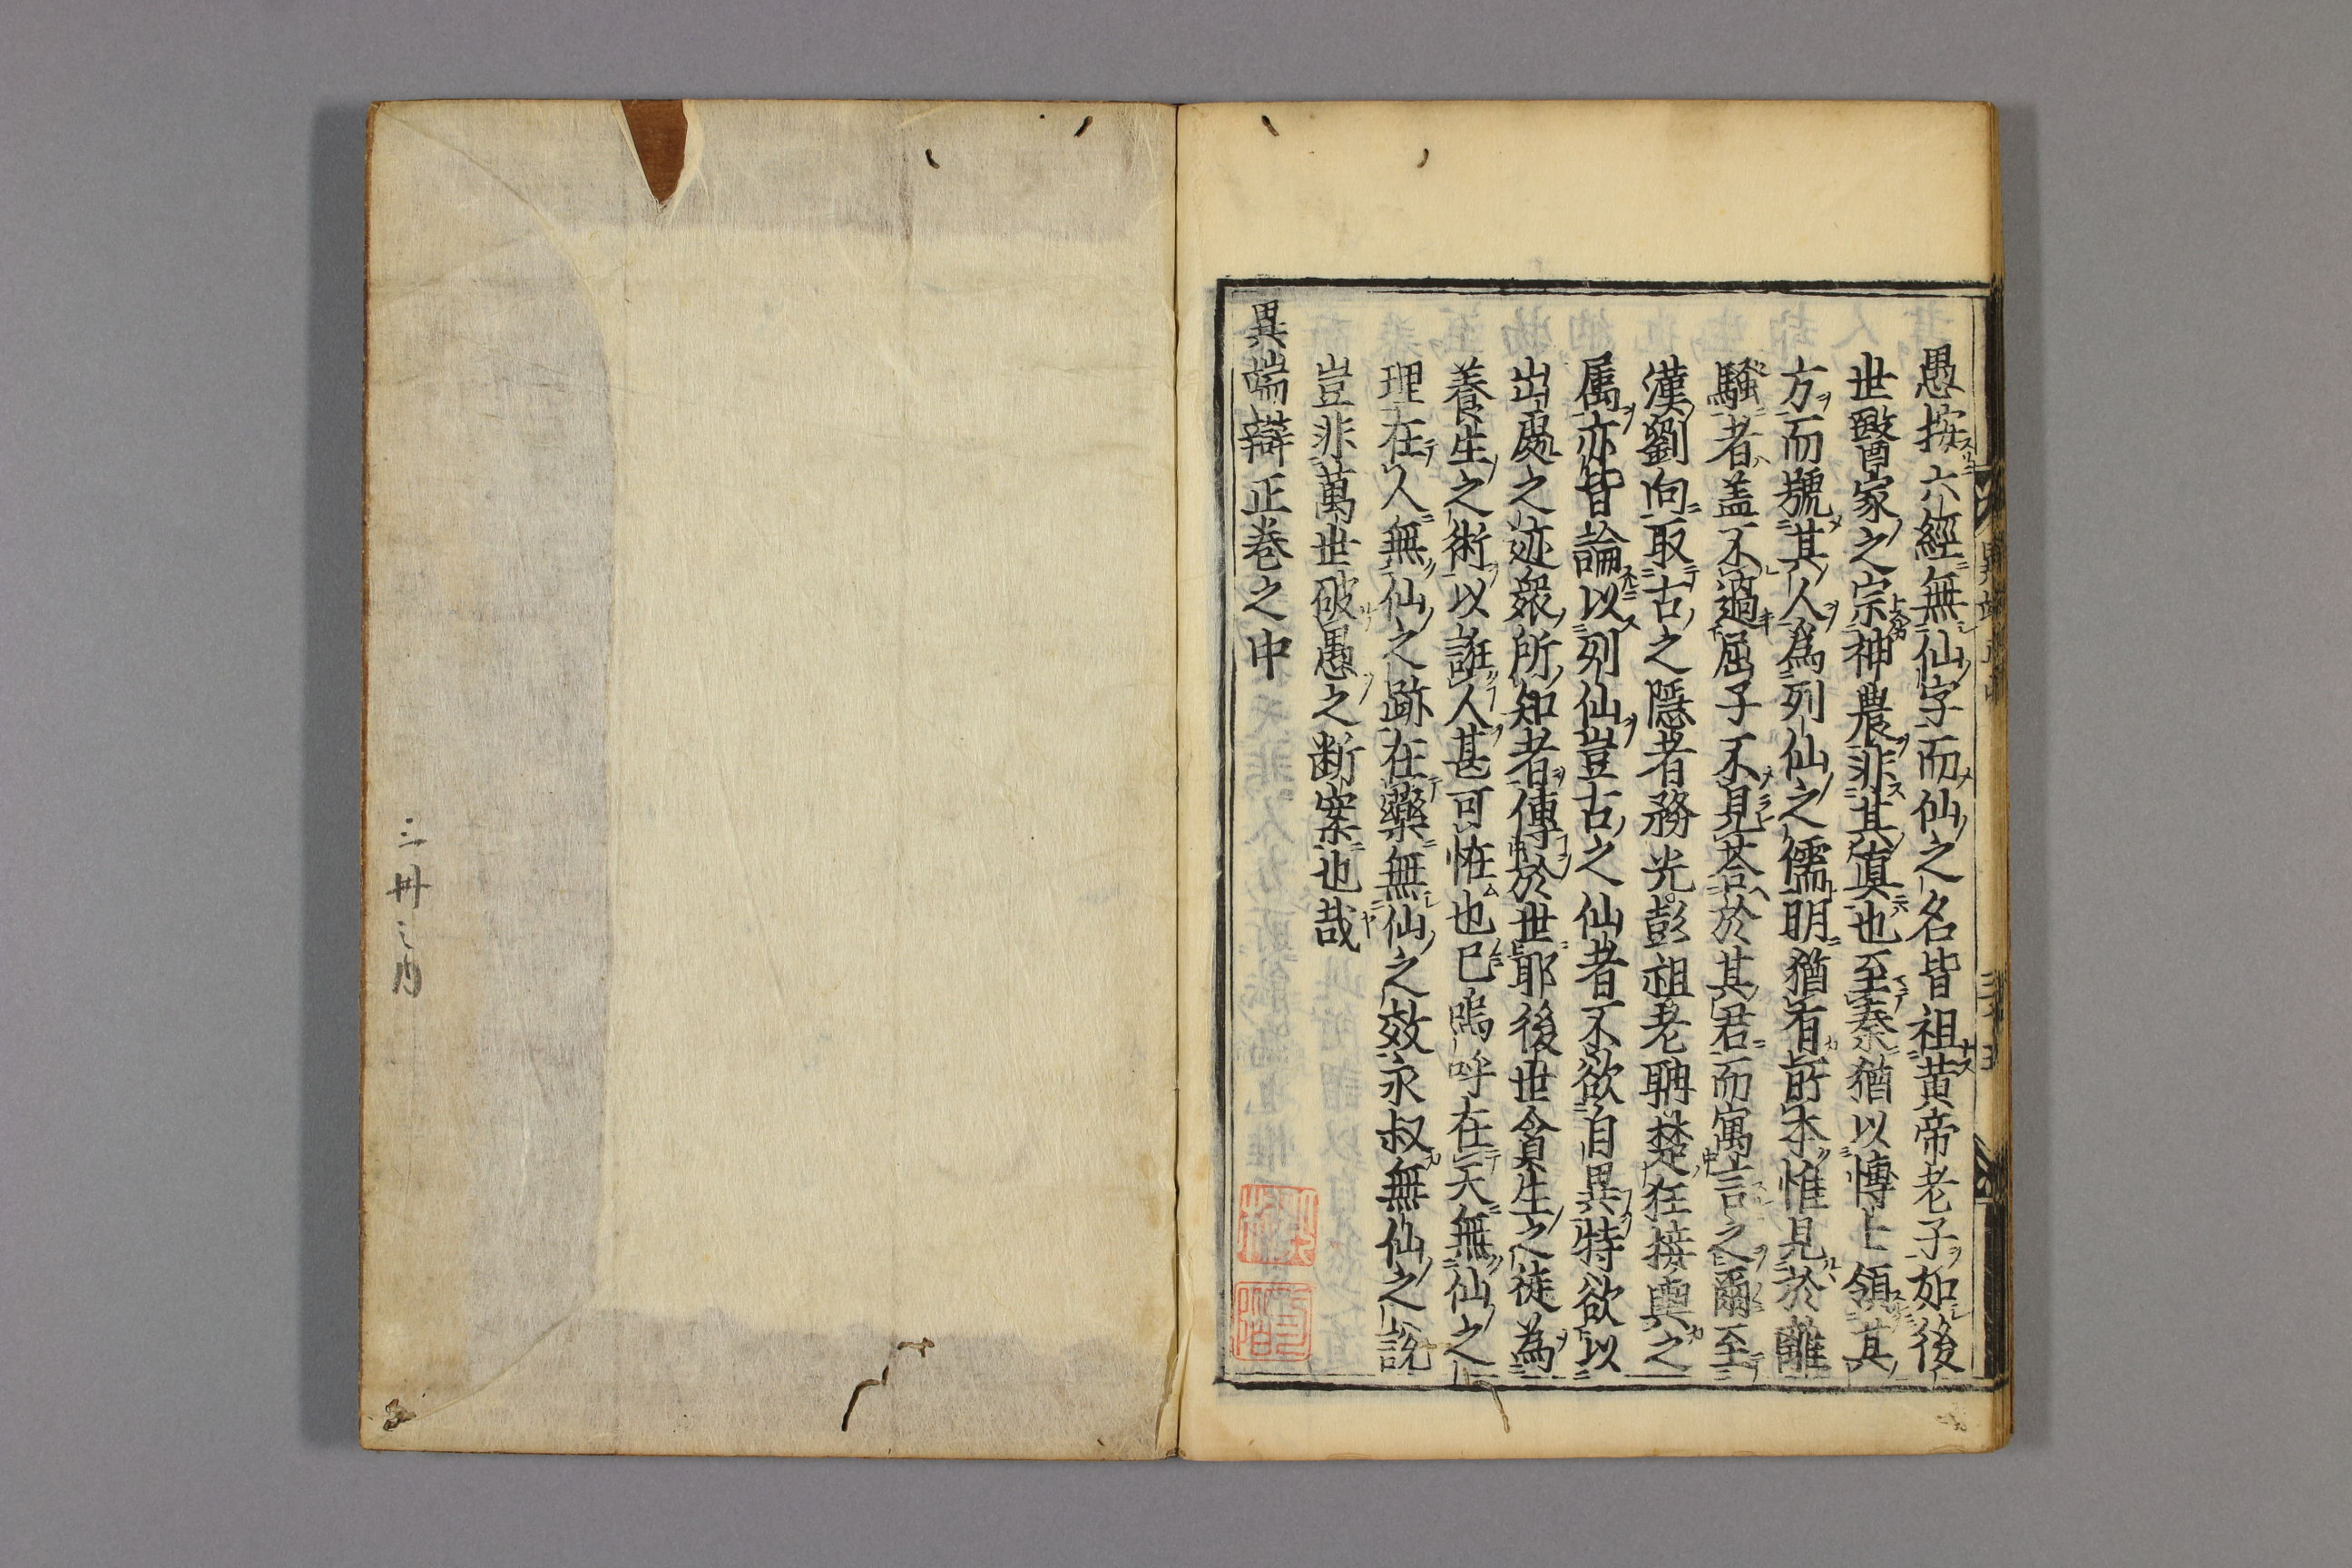 愚按六經無仙字而仙之名皆祖黄帝老子如後
世醫家之宗神農非其真也至秦猶以博士領其
方而號其人爲列仙之儒明猶有所本惟見於離
騷者盖不過屈子不見荅於其君而寓言之爾至
漢劉向取古之隱者務光彭祖老聃楚狂接輿之
属亦皆論以列仙豈古之仙者不欲自異特欲以
出處之迹衆所知者傳於世耶後世貪生之徒為
養生之術以誑人甚可恠也已嗚呼在天無仙之
理在人無仙之跡在藥無仙之效永叔無仙之說
豈非萬世破愚之断案也哉
異端辯正卷之中
三冊之内